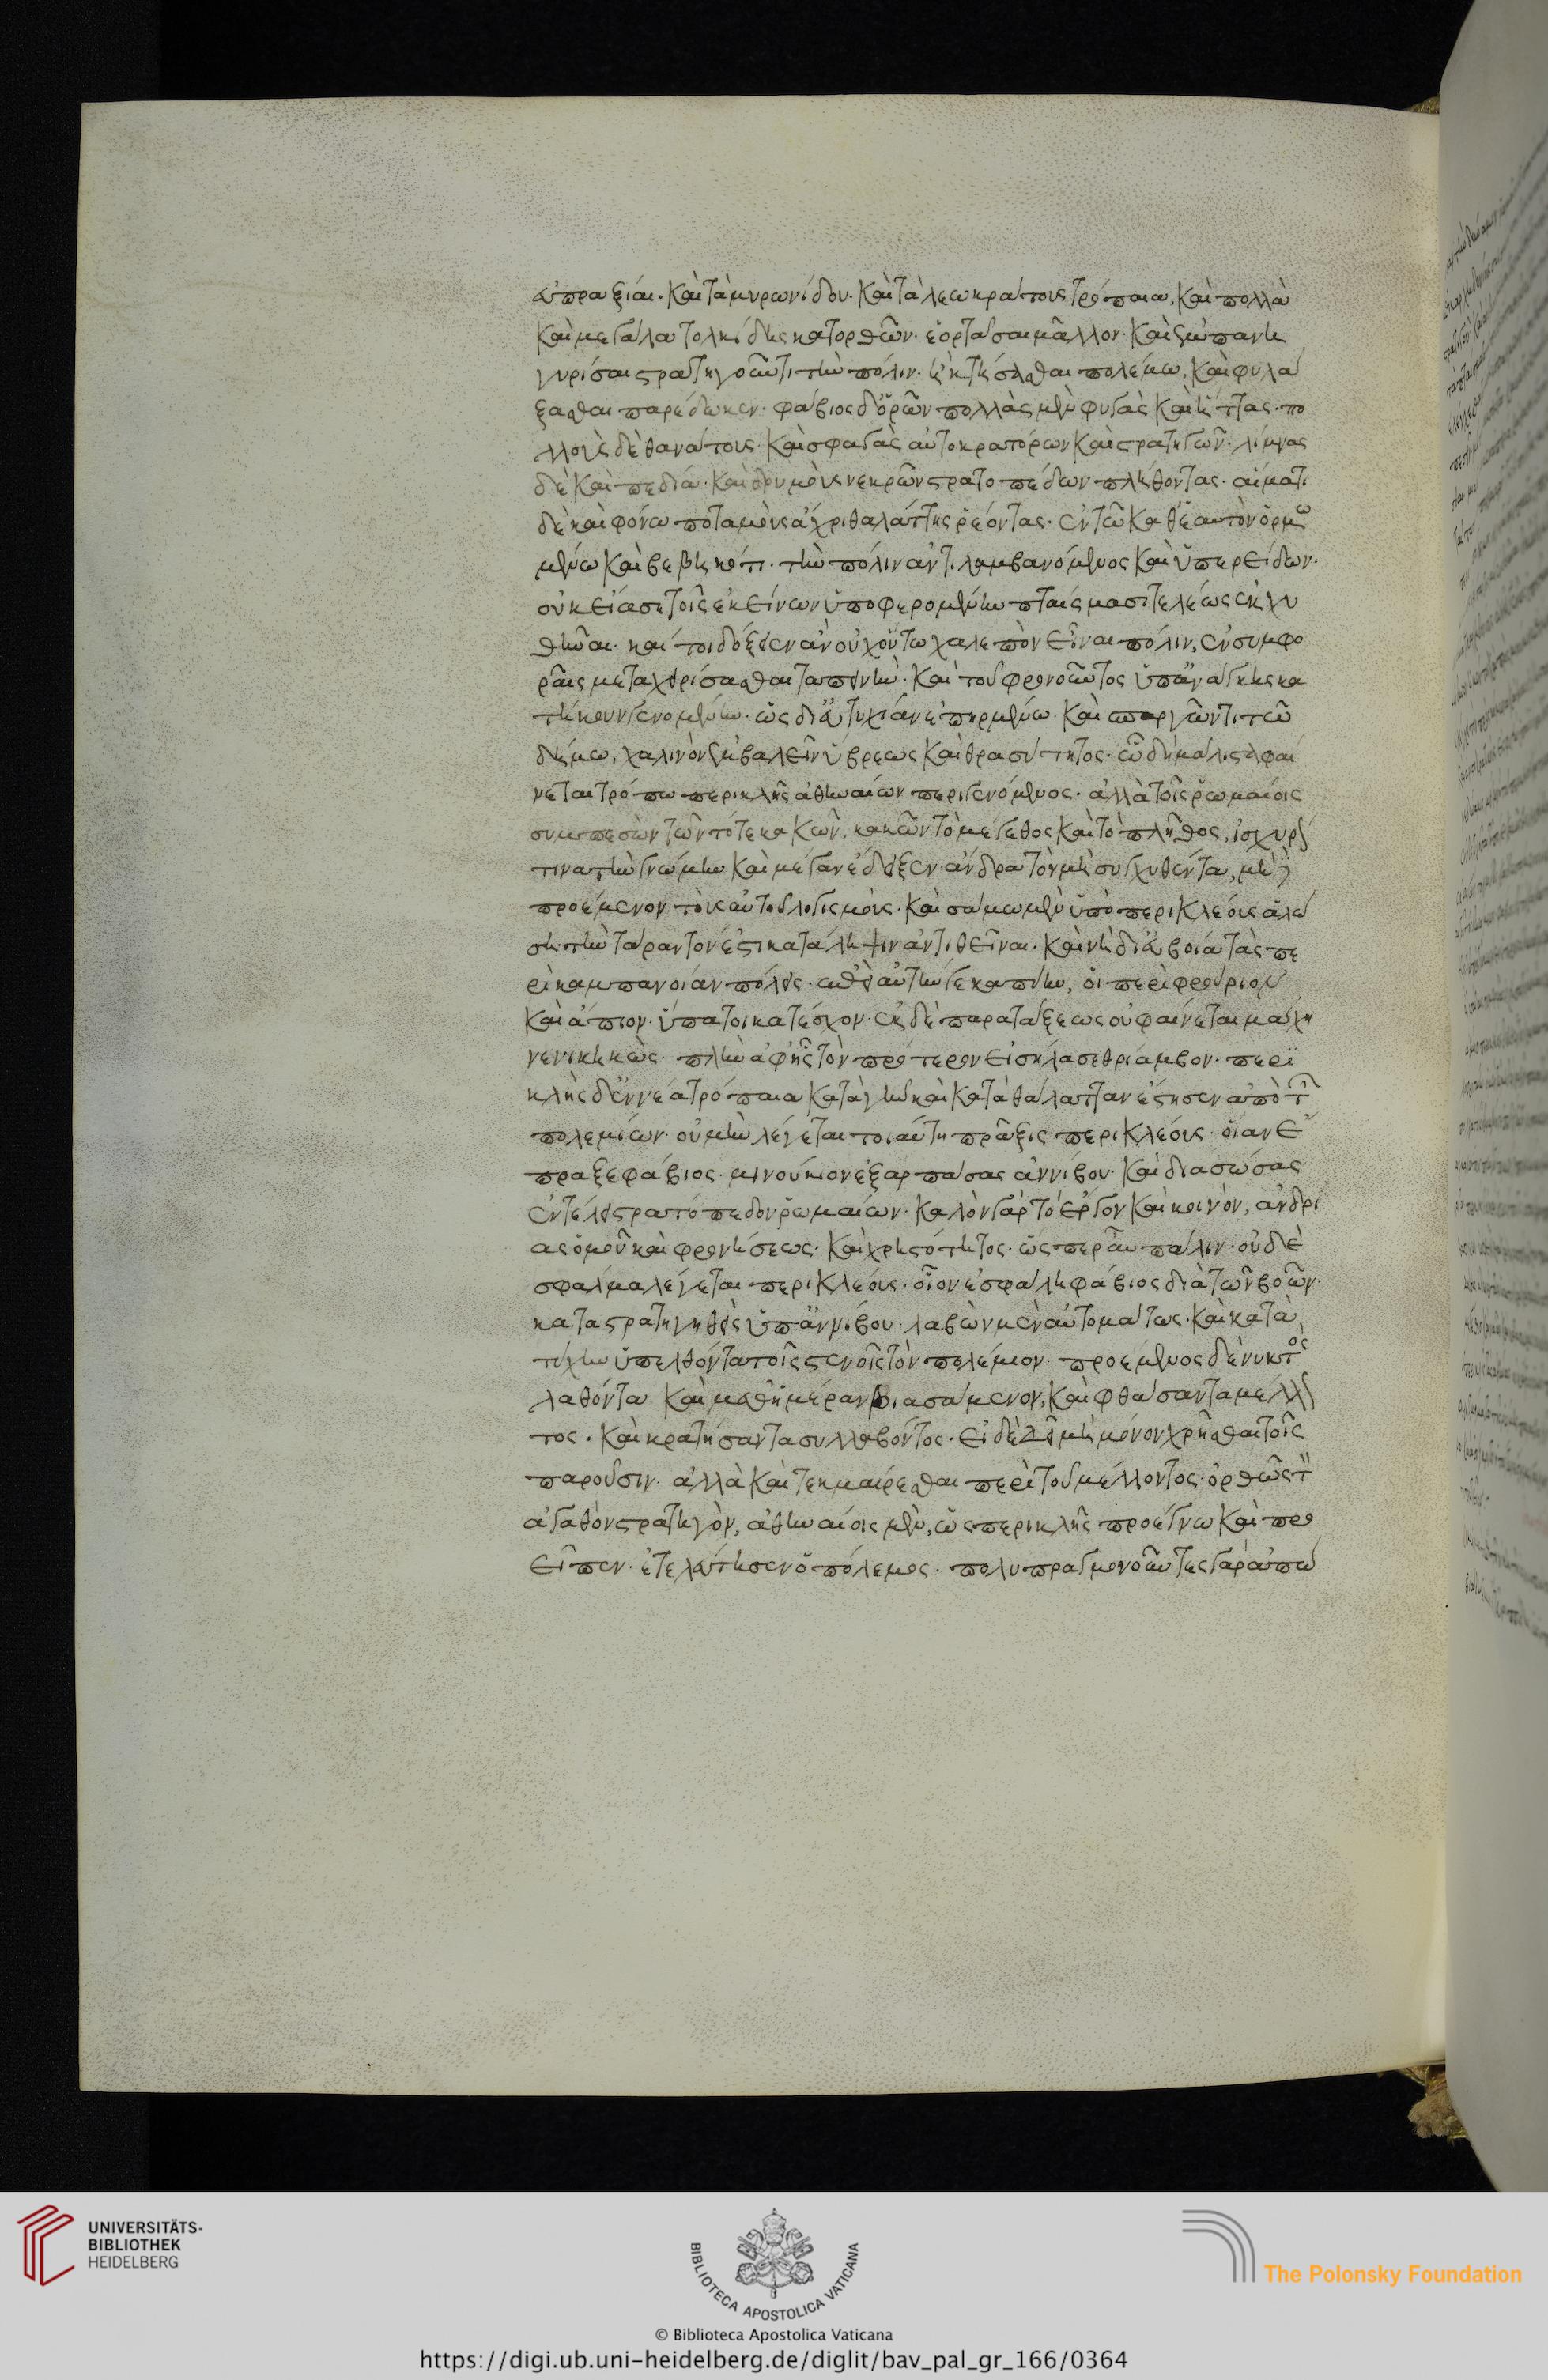 εὐπραξίαι· καὶ τὰ μυρωνίδου· καὶ τὰ λεωκράτους τρόπαια, καὶ πολλὰ
καὶ μεγάλα τολμίδης κατορθῶν· ἑορτάσαι μᾶλλον· καὶ
γυρίσαι στρατηγοῦντι τὴν πόλιν· ἢ κτήσασθαι πολέμω, καὶ φυλά
ξασθαι παρέδωκεν· φάβιος δ' ὁρῶν πολλὰς μὲν φυγὰς καὶ ἥττας· πο
λλοὺς δὲ θανάτους· καὶ σφαγὰς αὐτοκρατόρων καὶ στρατηγῶν· λίμνας
δὲ καὶ πεδία· καὶ δρυμοὺς νεκρῶν στρατοπέδων πλήθοντας· αἵματι
δὲ καὶ φόνω ποταμοὺς ἄχρι θαλάττης ῥέοντας· ἐν τῶ καθ' ἑαυτὸν ὁρμω
μένω καὶ βεβηκότι· τὴν πόλιν ἀντιλαμβανόμενος καὶ ὑπερείδων·
οὐκ εἴασε τοῖς ἐκείνων ὑποφερομένην πταίσμασι τελέως ἐκχυ
θῆναι· καίτοι δόξειεν ἂν οὐχ οὕτω χαλεπὸν εἶναι πόλιν, ἐν συμφο
ραῖς μεταχειρίσασθαι ταπεινὴν· καὶ τοῦ φρονοῦντος ὑπ' ἀνάγκης κα
τήκοον γενομένην· ὡς δι' εὐτυχίαν ἐπηρμένω· καὶ σπαργῶντι τῶ
δήμω, χαλινὸν ἐμβαλεῖν ὕβρεως καὶ θρασύτητος· ὧ δὴ μάλιστα φαί
νεται τρόπω περικλῆς ἀθηναίων περιγενόμενος· ἀλλὰ τοῖς ῥωμαίοις
συμπεσόντων τότε κακῶν, κακῶν τὸ μέγεθος καὶ τὸ πλῆθος, ἰσχυρόν
τινα τὴν γνώμην καὶ μέγαν ἔδειξεν ἄνδρα τὸν μὴ συγχυθέντα, μηδὲ
προέμενον τοὺς αὐτοῦ λογισμούς· καὶ σάμω μὲν ὑπὸ περικλέους ἁλού
ση· τὴν τάραντον ἔστι κατάληψιν ἀντιθεῖναι· καὶ νὴ δί' εὐβοία τὰς πε
ρὶ καμπανοίαν πόλεις· ἐπεὶ αὐτήν γε καπύην, οἱ περὶ φρούριον
καὶ ἄπιον· ὕπατοι κατέσχον· ἐκ δὲ παρατάξεως οὐ φαίνεται μάχη
νενικηκὼς· πλὴν ἀφ' ἧς τὸν πρότερον εἰσήλασε θρίαμβον· περι
κλῆς δ' ἐννέα τρόπαια κατὰ γῆν καὶ κατὰ θάλατταν ἔστησεν ἀπὸ τῶν
πολεμίων· οὐ μὴν λέγεται τοιαύτη πρᾶξις περικλέους· οἵαν ἔ
πραξε φάβιος· μινούκιον ἐξαρπάσας ἀννίβου· καὶ διασώσας
ἐντελὲς στρατόπεδον ῥωμαίων· καλὸν γὰρ τὸ ἔργον καὶ κοινὸν, ἀνδρί
ας ὁμοῦ καὶ φρονήσεως· καὶ χρηστότητος· ὥσπερ αὖ πάλιν· οὐδὲ
σφάλμα λέγεται περικλέους· οἷον ἐσφάλη φάβιος διὰ τῶν βοῶν·
καταστρατηγηθεὶς ὑπ' ἀννίβου· λαβὼν μὲν αὐτομάτως· καὶ κατὰ
τύχην ὑπελθόντα τοῖς στενοῖς τὸν πολέμιον· προέμενος δὲ νυκτὸς
λαθόντα· καὶ μεθ' ἡμέραν βιασάμενον, καὶ φθάσαντα μέλλον
τος· καὶ κρατήσαντα συλλαβόντος· εἰ δὲ δεῖ μὴ μόνον χρῆσθαι τοῖς
παροῦσιν· ἀλλὰ καὶ τεκμαίρεσθαι περὶ τοῦ μέλλοντος· ὀρθῶς τὸν
ἀγαθὸν στρατηγὸν, ἀθηναίοις μὲν, ὡς περικλῆς προέγνω καὶ προ
εῖπεν· ἐτελεύτησεν ὁ πόλεμος· πολυπραγμονοῦντες γὰρ ἀπώ
UNIVERSITÄTS-
BIBLIOTHEK
HEIDELBERG
BIBLIOTECA APOSTOLICA VATICANA
The Polonsky Foundation
© Biblioteca Apostolica Vaticana
https://digi.ub.uni-heidelberg.de/diglit/bav_pal_gr_166/0364